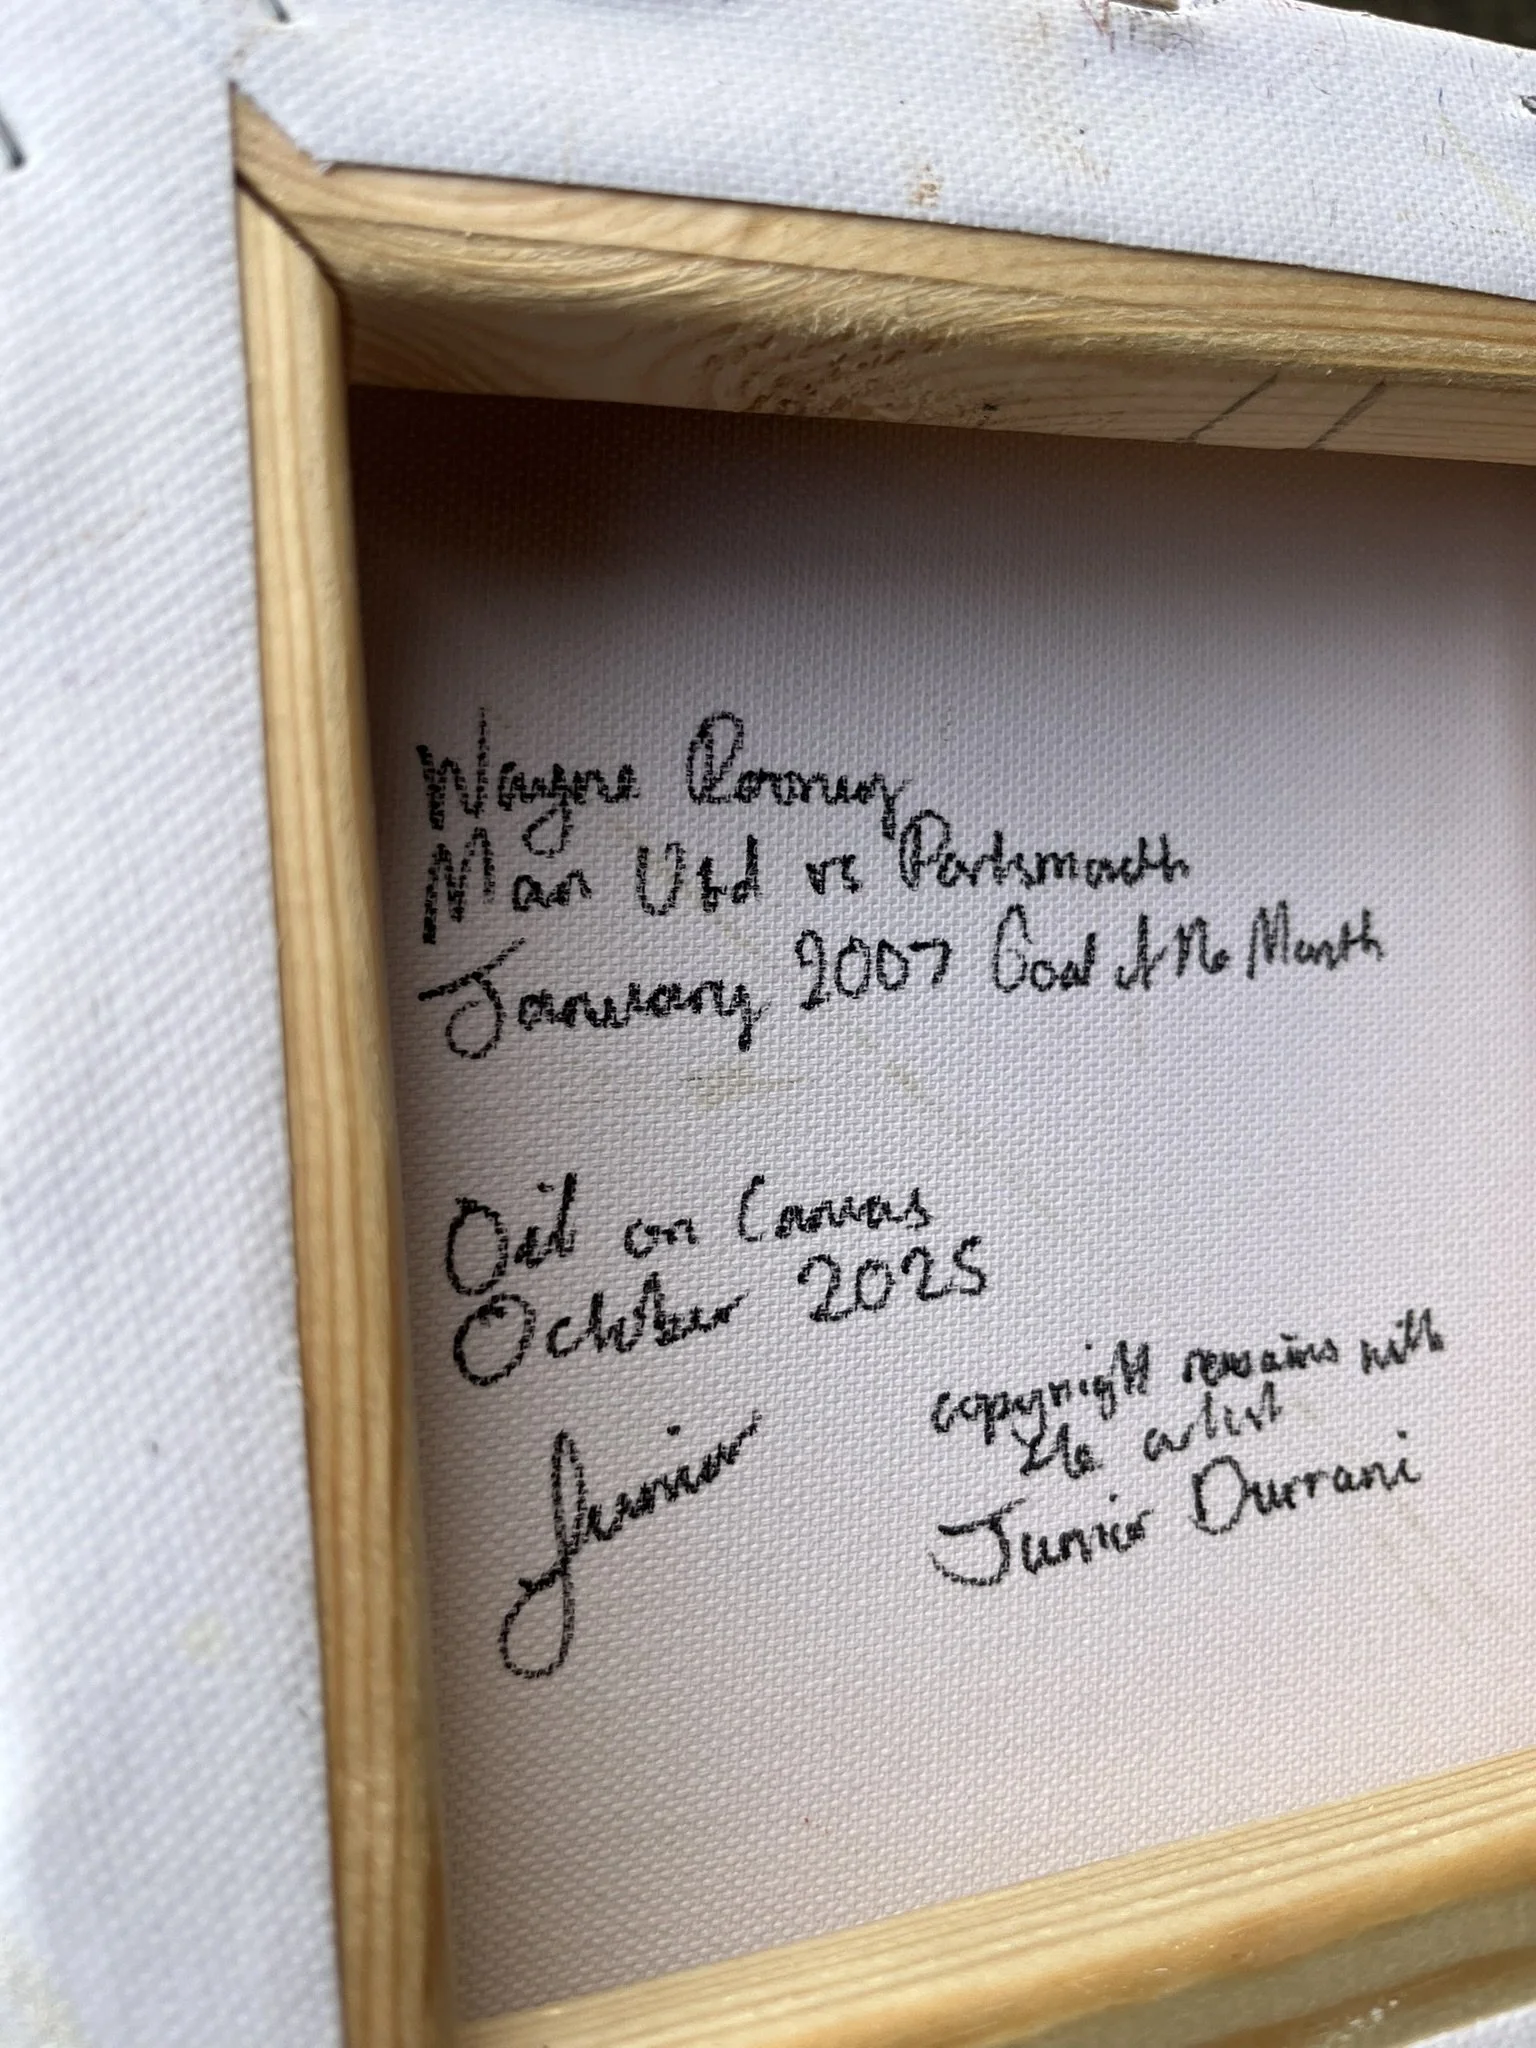 Wayne Rooney
Man Utd vs Portsmouth
January 2007 Goal of the Month
Oil on Canvas
October 2025
Junior
copyright remains with
the artist
Junior Durrani